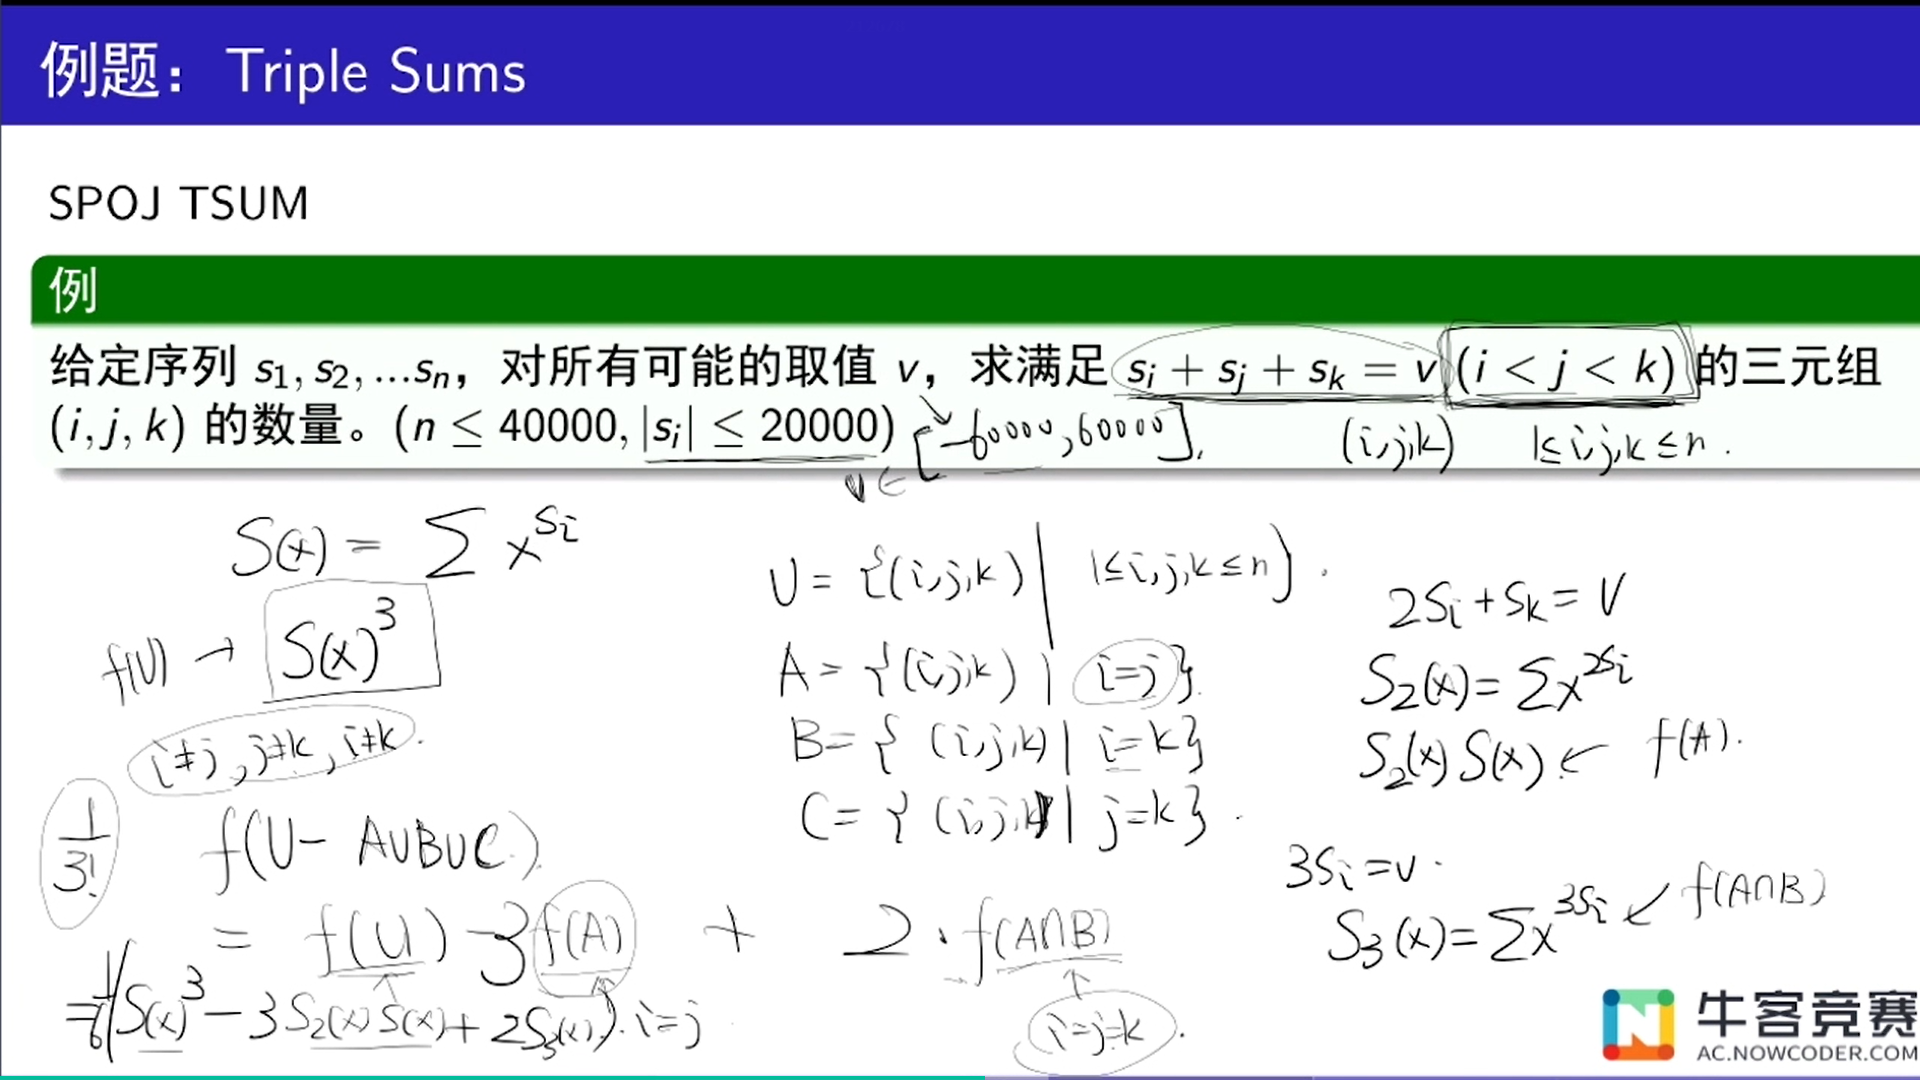 例题：Triple Sums
SPOJ TSUM
例
给定序列 s₁, s₂, ...sₙ，对所有可能的取值 v，求满足 sᵢ + sⱼ + sₖ = v (i < j < k) 的三元组
(i, j, k) 的数量。(n ≤ 40000, |sᵢ| ≤ 20000)
v ∈ [-60000, 60000].
(i,j,k) 1≤i,j,k≤n.
S(x) = ∑ x^{Si}
f(U) → S(x)³
i≠j, j≠k, i≠k.
1/3! f(U- A∪B∪C)
= f(U) - 3f(A) + 2·f(A∩B)
=1/6(S(x)³ - 3S₂(x)S(x) + 2S₃(x)). i=j
i=j=k.
U = {(i,j,k) | 1≤i,j,k≤n}.
A = {(i,j,k) | i=j}.
B= {(i,j,k) | i=k}
C= {(i,j,k) | j=k}.
2Si+Sk= V
S₂(x)= ∑x^{2Si}
S₂(x) S(x) ← f(A).
3Si=v.
S₃(x)= ∑x^{3Si} ← f(A∩B)
牛客竞赛
AC.NOWCODER.COM